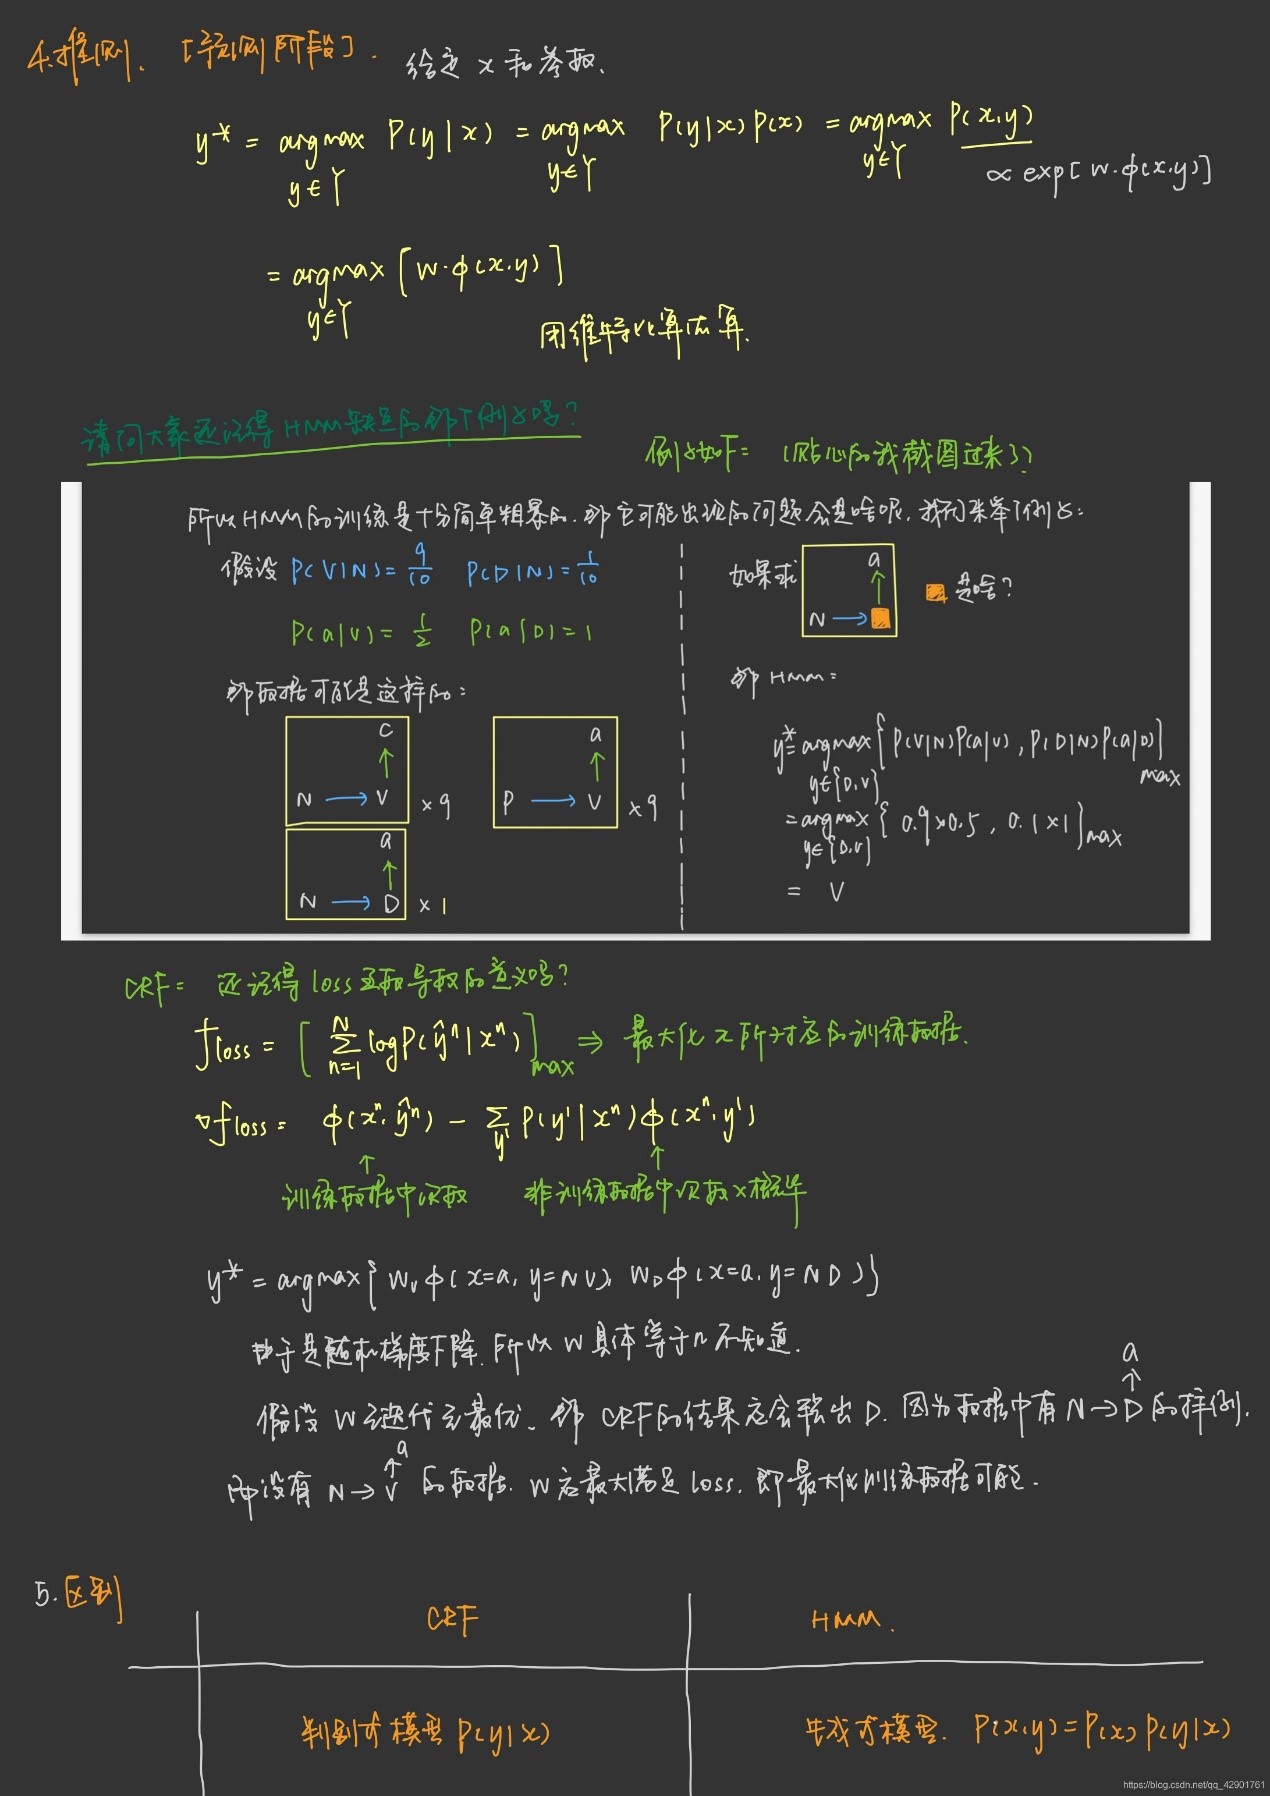 4.推测. [预测阶段]. 给定 x 和参数.
y* = argmax P(y|x) = argmax P(y|x)P(x) = argmax P(x,y)
y∈Y y∈Y y∈Y ∝ exp[w·φ(x,y)]
= argmax [w·φ(x,y)]
y∈Y
用维特比算法算.
请问大家还记得HMM缺点的那个例子吗?
例子如下: (贴心的我截图过来了)
所以HMM的训练是十分简单粗暴的.那它可能出现的问题会是啥呢,我们来举个例子:
假设 P(V|N)=9/10 P(D|N)=1/10
P(a|V)=1/2 P(a|D)=1
那数据可能是这样的:
c
↑
N → V ×9
a
↑
P → V ×9
a
↑
N → D ×1
如果求
a
↑
N → ■
■ 是啥?
那 HMM:
y*=argmax{P(V|N)P(a|V),P(D|N)P(a|D)}max
y∈{D,V}
=argmax{0.9×0.5, 0.1×1}max
y∈{D,V}
= V
CRF: 还记得loss函数导数的意义吗?
floss = [∑ logP(ŷⁿ|xⁿ)]max ⇒ 最大化x所对应的训练数据.
N
n=1
∇floss = φ(xⁿ,ŷⁿ) − ∑ P(y'|xⁿ)φ(xⁿ,y')
y'
↑ ↑
训练数据中次数 非训练数据中次数×概率
y* = argmax{Wvφ(x=a, y=NV), WDφ(x=a, y=ND)}
由于是随机梯度下降.所以W具体等于n不知道.
假设W迭代到最优.那CRF的结果应会输出D.因为数据中有N→D的样例,
a
↑
没有 N→V 的数据. W应最大满足loss.即最大化训练数据可能.
a
↑
5.区别
CRF HMM.
判别式模型 P(y|x) 生成式模型. P(x,y)=P(x)P(y|x)
https://blog.csdn.net/qq_42901761